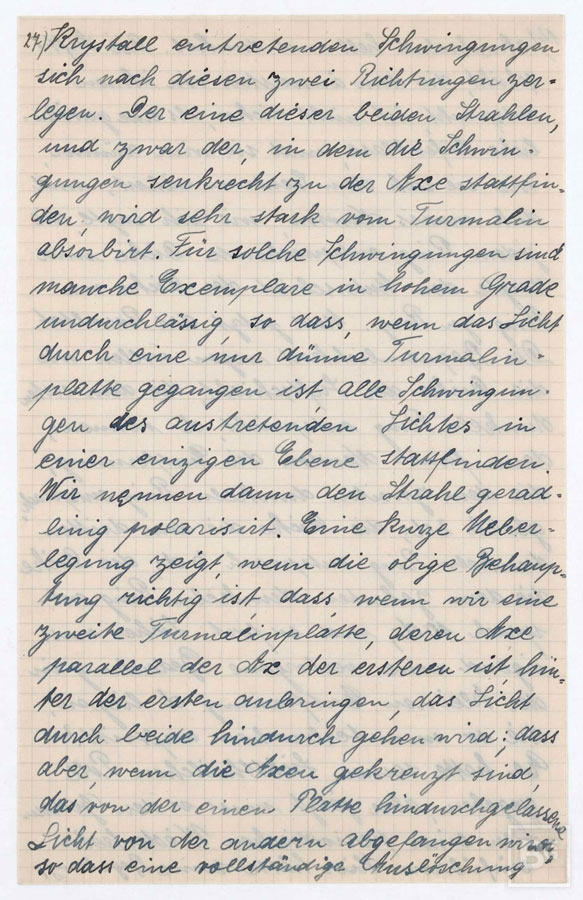 27) Krystall eintretenden Schwingungen
sich nach diesen zwei Richtungen zer-
legen. Der eine dieser beiden Strahlen,
und zwar der, in dem die Schwin-
gungen senkrecht zu der Axe stattfin-
den, wird sehr stark vom Turmalin
absorbirt. Für solche Schwingungen sind
manche Exemplare in hohem Grade
undurchlässig, so dass, wenn das Licht
durch eine nur dünne Turmalin-
platte gegangen ist, alle Schwingun-
gen des austretenden Lichtes in
einer einzigen Ebene stattfinden.
Wir nennen dann den Strahl gerad-
linig polarisirt. Eine kurze Ueber-
legung zeigt, wenn die obige Behaup-
tung richtig ist, dass, wenn wir eine
zweite Turmalinplatte, deren Axe
parallel der Ax der ersteren ist, hin-
ter der ersten anbringen, das Licht
durch beide hindurch gehen wird; dass
aber, wenn die Axen gekreuzt sind,
das von der einen Platte hindurchgelassene
Licht von der andern abgefangen wird,
so dass eine vollständige Auslöschung